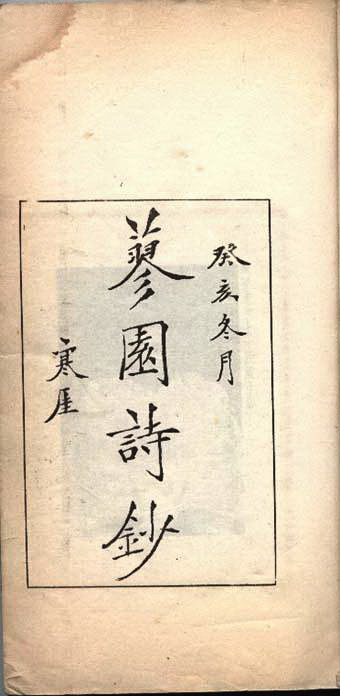 癸亥冬月
蓼園詩鈔
寒厓